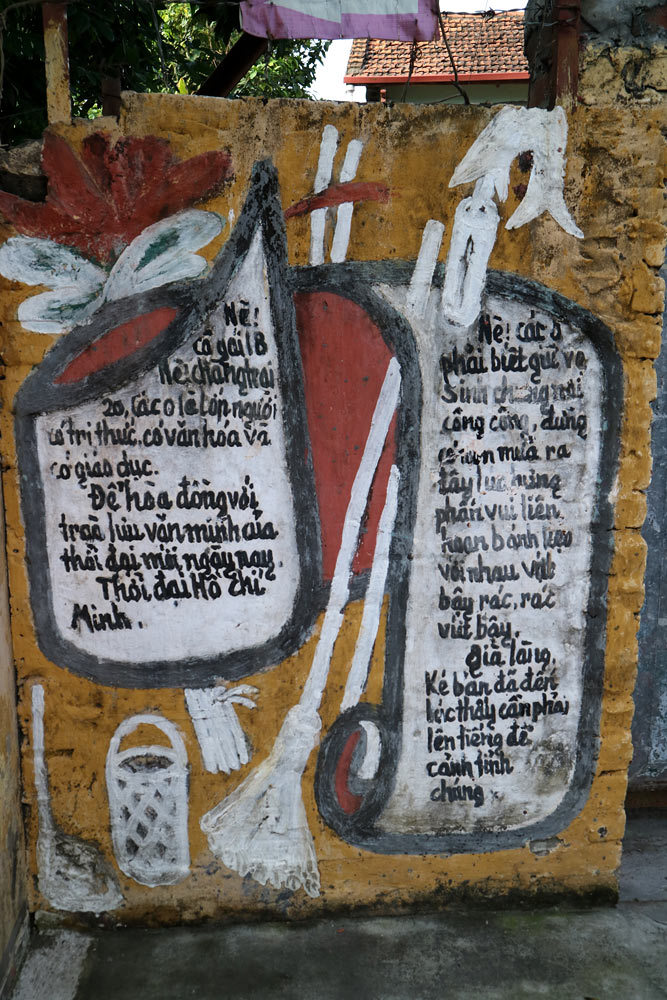 Nè!
cô gái 18
Nè! chàng trai
20, các o là lớp người
có tri thức, có văn hóa và
có giáo dục.
Để hòa đồng với
trào lưu văn minh của
thời đại mới ngày nay.
Thời đại Hồ Chí
Minh.
Nè! các o
phải biết giữ vệ
Sinh chung nơi
công công, đừng
mưa ra
tẩy lúc hứng
phấn vui liên
hoan bánh kẹo
với nhau vứt
bậy rác, rác
vứt bậy.
già làng,
Kẻ bản đã đến
lúc thấy cần phải
lên tiếng để
cảnh tỉnh
chăng